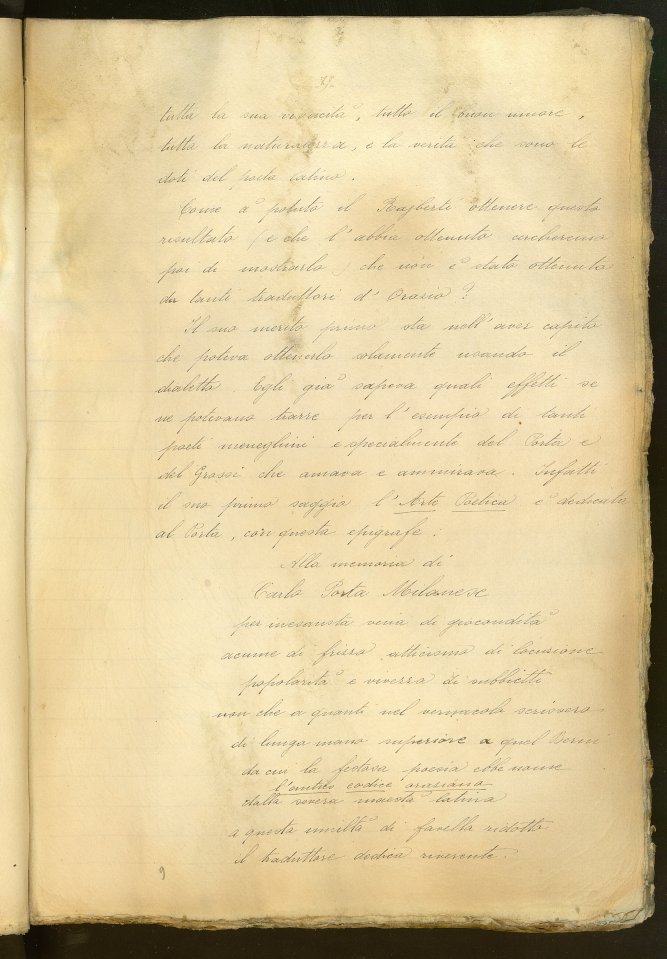 tutta la sua vivacità, tutto il buon umore,
tutta la naturalezza, e la verità che sono le
doti del poeta latino.
Come à potuto il Rajberti ottenere questo
risultato (e che l'abbia ottenuto cercheremo
poi di mostrarlo) che non è stato ottenuto
da tanti traduttori d'Orazio?
Il suo merito primo sta nell'aver capito
che poteva ottenerlo solamente usando il
dialetto. Egli già sapeva quali effetti se
ne potevano trarre per l'esempio di tanti
poeti meneghini e specialmente del Porta e
del Grossi che amava e ammirava. Infatti
il suo primo saggio l'Arte Poetica è dedicato
al Porta, con questa epigrafe:
Alla memoria di
Carlo Porta Milanese
per inesausta vena di giocondità
acume di frizzo atticismo di locuzione
popolarità e vivezza di subbietti
non che a quanti nel vernacolo scrissero
di lunga mano superiore a quel Berni
da cui la festosa poesia ebbe nome
l'antico codice oraziano
dalla severa maestà latina
a questa umiltà di favella ridotto
il traduttore dedica riverente.
9